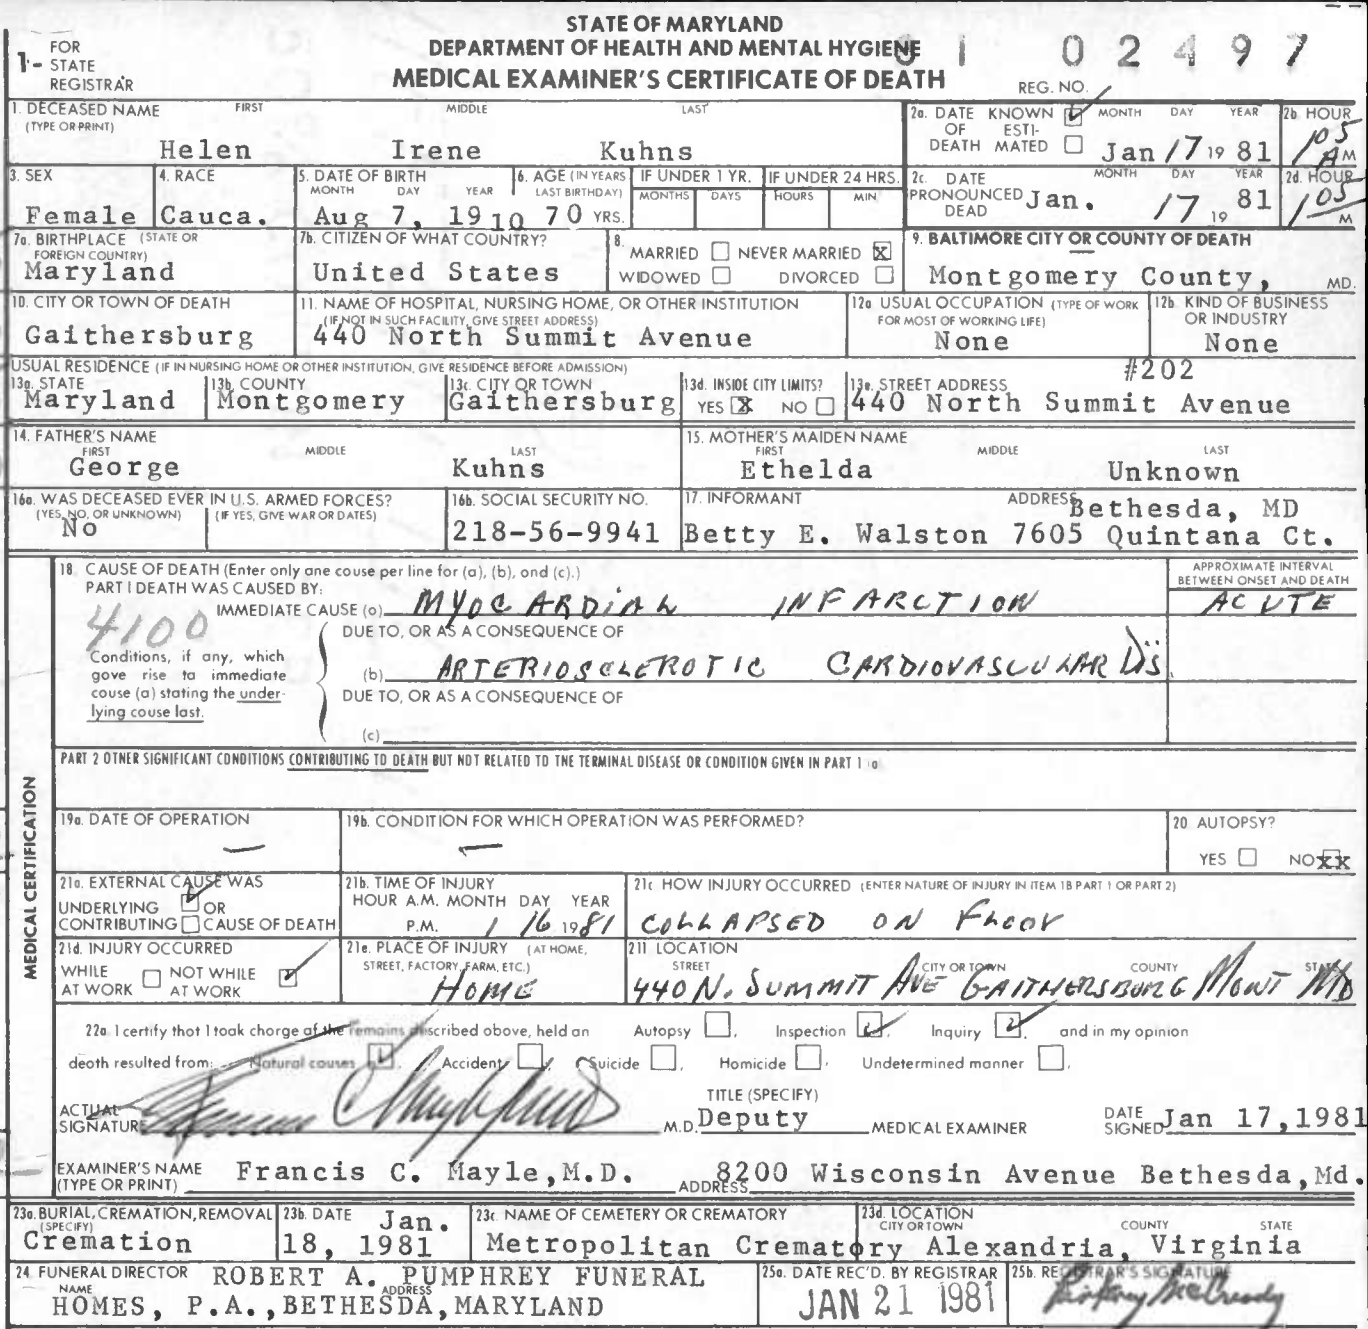 STATE OF MARYLAND
DEPARTMENT OF HEALTH AND MENTAL HYGIENE
MEDICAL EXAMINER'S CERTIFICATE OF DEATH
1- FOR STATE REGISTRAR
81 02497
REG. NO.
1. DECEASED NAME FIRST MIDDLE LAST
(TYPE OR PRINT)
Helen Irene Kuhns
2a. DATE OF DEATH KNOWN ESTIMATED MONTH DAY YEAR
Jan 17 19 81
2b. HOUR
1 05 A M
3. SEX
Female
4. RACE
Cauca.
5. DATE OF BIRTH
MONTH DAY YEAR
Aug 7, 1910
6. AGE (IN YEARS LAST BIRTHDAY)
70 YRS.
IF UNDER 1 YR.
MONTHS DAYS
IF UNDER 24 HRS.
HOURS MIN
2c. DATE PRONOUNCED DEAD MONTH DAY YEAR
Jan. 17 19 81
2d. HOUR
1 05 M
7a. BIRTHPLACE (STATE OR FOREIGN COUNTRY)
Maryland
7b. CITIZEN OF WHAT COUNTRY?
United States
8. MARRIED NEVER MARRIED X
WIDOWED DIVORCED
9. BALTIMORE CITY OR COUNTY OF DEATH
Montgomery County, MD.
10. CITY OR TOWN OF DEATH
Gaithersburg
11. NAME OF HOSPITAL, NURSING HOME, OR OTHER INSTITUTION
(IF NOT IN SUCH FACILITY, GIVE STREET ADDRESS)
440 North Summit Avenue
12a USUAL OCCUPATION (TYPE OF WORK FOR MOST OF WORKING LIFE)
None
12b. KIND OF BUSINESS OR INDUSTRY
None
USUAL RESIDENCE (IF IN NURSING HOME OR OTHER INSTITUTION, GIVE RESIDENCE BEFORE ADMISSION)
13a. STATE
Maryland
13b. COUNTY
Montgomery
13c. CITY OR TOWN
Gaithersburg
13d. INSIDE CITY LIMITS?
YES X NO
13e. STREET ADDRESS #202
440 North Summit Avenue
14. FATHER'S NAME
FIRST MIDDLE LAST
George Kuhns
15. MOTHER'S MAIDEN NAME
FIRST MIDDLE LAST
Ethelda Unknown
16a. WAS DECEASED EVER IN U.S. ARMED FORCES?
(YES, NO, OR UNKNOWN) (IF YES, GIVE WAR OR DATES)
No
16b. SOCIAL SECURITY NO.
218-56-9941
17. INFORMANT ADDRESS
Bethesda, MD
Betty E. Walston 7605 Quintana Ct.
MEDICAL CERTIFICATION
18. CAUSE OF DEATH (Enter only one cause per line for (a), (b), and (c).)
PART I DEATH WAS CAUSED BY:
APPROXIMATE INTERVAL BETWEEN ONSET AND DEATH
IMMEDIATE CAUSE (a) MYOCARDIAL INFARCTION ACUTE
4100
DUE TO, OR AS A CONSEQUENCE OF
Conditions, if any, which gave rise to immediate cause (a) stating the underlying cause last.
(b) ARTERIOSCLEROTIC CARDIOVASCULAR DIS
DUE TO, OR AS A CONSEQUENCE OF
(c)
PART 2 OTHER SIGNIFICANT CONDITIONS CONTRIBUTING TO DEATH BUT NOT RELATED TO THE TERMINAL DISEASE OR CONDITION GIVEN IN PART 1 a
19a. DATE OF OPERATION
—
19b. CONDITION FOR WHICH OPERATION WAS PERFORMED?
—
20 AUTOPSY?
YES NO XX
21a. EXTERNAL CAUSE WAS
UNDERLYING OR
CONTRIBUTING CAUSE OF DEATH
21b. TIME OF INJURY
HOUR A.M. MONTH DAY YEAR
P.M. 1 16 1981
21c HOW INJURY OCCURRED (ENTER NATURE OF INJURY IN ITEM 18 PART 1 OR PART 2)
COLLAPSED ON FLOOR
21d. INJURY OCCURRED
WHILE AT WORK NOT WHILE AT WORK
21e. PLACE OF INJURY (AT HOME, STREET, FACTORY, FARM, ETC.)
HOME
21f. LOCATION
STREET CITY OR TOWN COUNTY STATE
440 N. SUMMIT AVE GAITHERSBURG MONT MD
22a I certify that I took charge of the remains described above, held an Autopsy , Inspection , Inquiry , and in my opinion
death resulted from: Natural causes , Accident , Suicide , Homicide , Undetermined manner .
ACTUAL SIGNATURE M.D.
TITLE (SPECIFY)
Deputy MEDICAL EXAMINER
DATE SIGNED Jan 17,1981
EXAMINER'S NAME (TYPE OR PRINT) Francis C. Mayle,M.D. ADDRESS 8200 Wisconsin Avenue Bethesda,Md.
23a. BURIAL, CREMATION, REMOVAL (SPECIFY)
Cremation
23b. DATE
Jan. 18, 1981
23c. NAME OF CEMETERY OR CREMATORY
Metropolitan Crematory
23d. LOCATION
CITY OR TOWN COUNTY STATE
Alexandria, Virginia
24 FUNERAL DIRECTOR
NAME ADDRESS
ROBERT A. PUMPHREY FUNERAL
HOMES, P.A., BETHESDA, MARYLAND
25a. DATE REC'D. BY REGISTRAR
JAN 21 1981
25b. REGISTRAR'S SIGNATURE